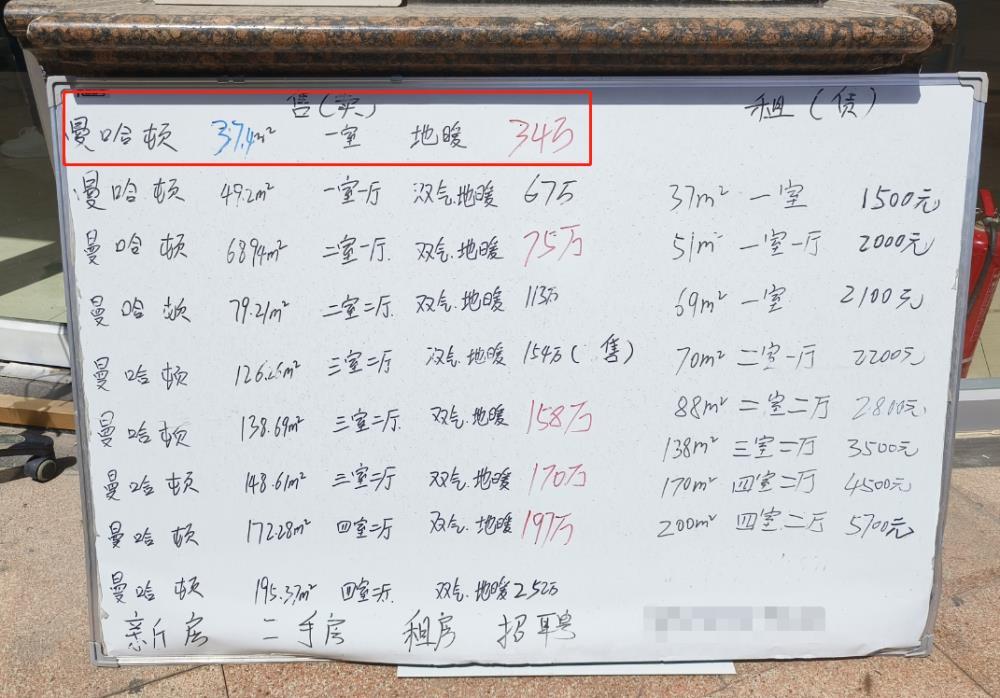 售(卖)
曼哈顿 37.4m² 一室 地暖 34万
曼哈顿 49.2m² 一室一厅 双气.地暖 67万
曼哈顿 68.94m² 二室一厅. 双气.地暖 75万
曼哈顿 79.21m² 二室二厅 双气.地暖 113万
曼哈顿 126.26m² 三室二厅 双气.地暖 154万(售)
曼哈顿 138.69m² 三室二厅. 双气.地暖 158万
曼哈顿 148.61m² 三室二厅 双气.地暖 170万
曼哈顿 172.28m² 四室二厅 双气.地暖 197万
曼哈顿 195.37m² 四室二厅. 双气.地暖 252万
新房 二手房 租房 招聘
租(赁)
37m² 一室 1500元
51m² 一室一厅 2000元
69m² 一室 2100元
70m² 二室一厅 2200元
88m² 二室二厅 2800元
138m² 三室二厅 3500元
170m² 四室二厅 4500元
200m² 四室二厅 5700元